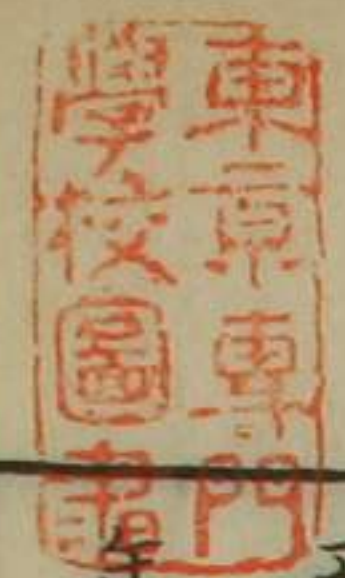 東京専門
學校圖書